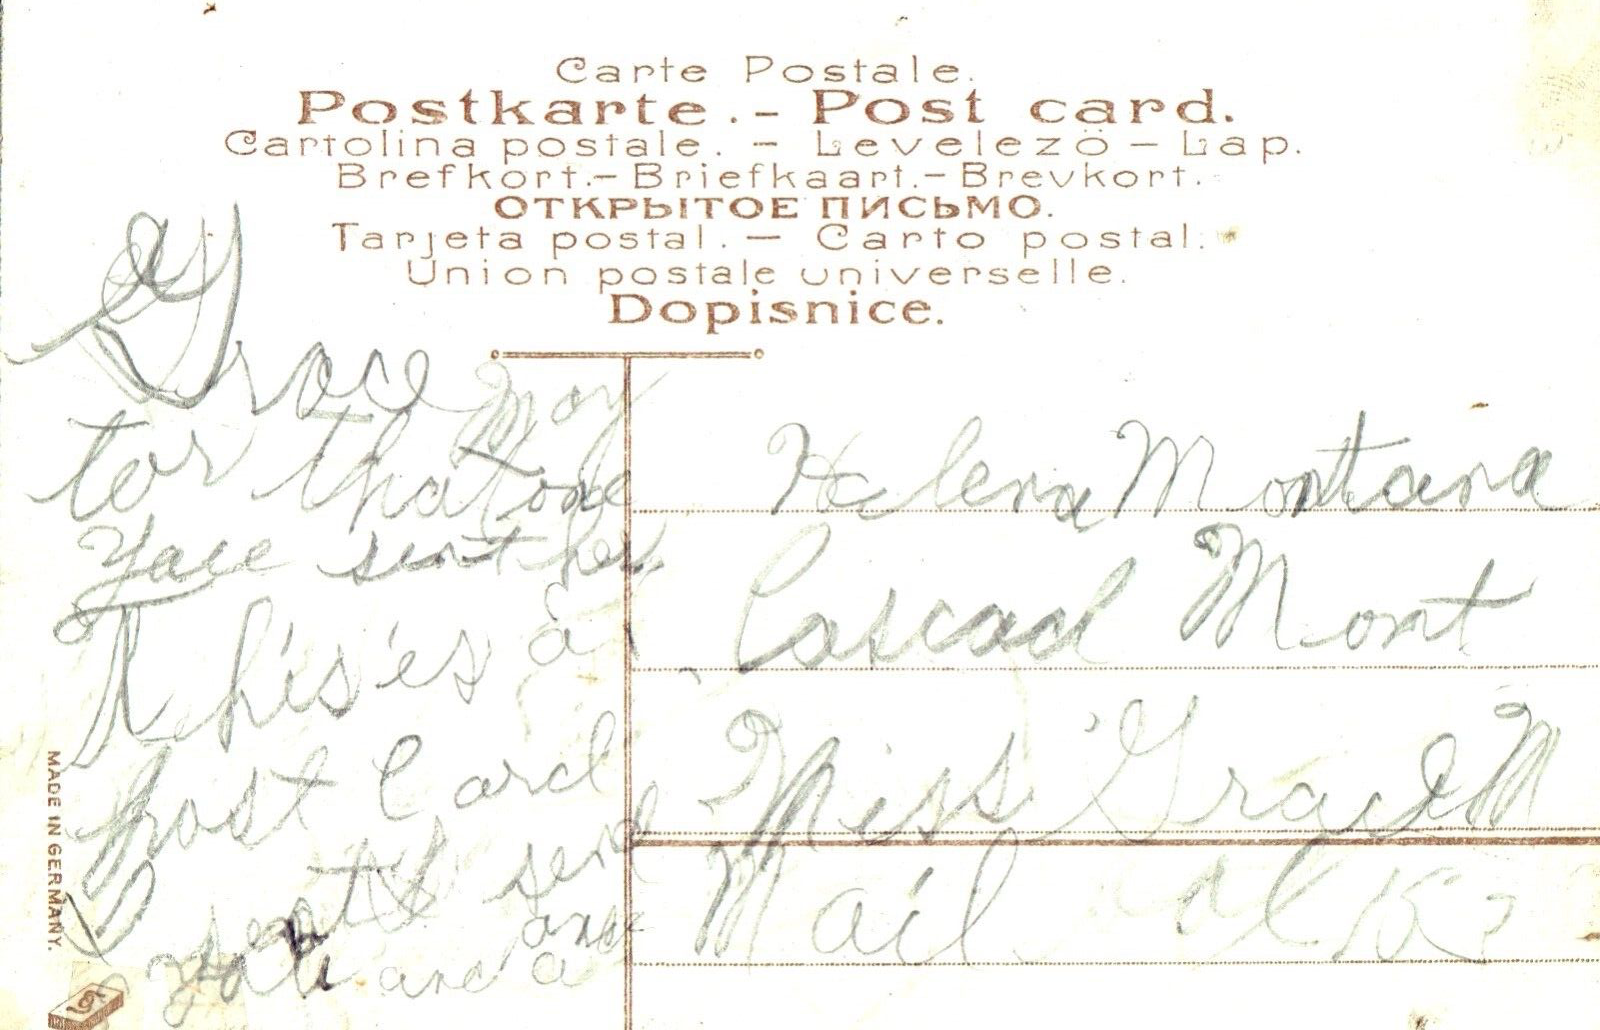 Carte Postale.
Postkarte.- Post card.
Cartolina postale. - Levelezö-Lap.
Brefkort.-Briefkaart.-Brevkort.
ОТКРЫТОЕ ПИСЬМО.
Tarjeta postal. - Carto postal.
Union postale universelle.
Dopisnice.
Grace May
for that one
sent her
This is a
post Card
send
are a
Helena Montana
Cascad Mont
Miss Grace M
Mail
MADE IN GERMANY.